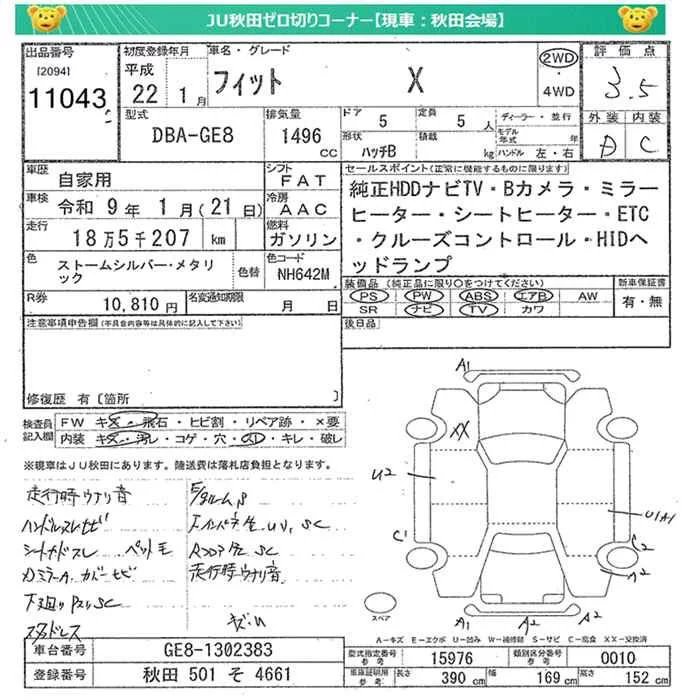 JU秋田ゼロ切りコーナー【現車：秋田会場】
出品番号 初度登録年月 車名・グレード 評価点
[2094] 平成 フィット X 2WD・4WD 3.5
11043 22 1月 外装 内装
型式 排気量 ドア 5 定員 5人 ディーラー・並行 A C
DBA-GE8 1496cc 形状 ハッチB 積載 kg モデル年式 年 ハンドル 左・右
車歴 自家用 シフト FAT セールスポイント(正常に機能するものに限ります)
車検 令和 9年 1月(21日) 冷房 AAC 純正HDDナビTV・Bカメラ・ミラー
走行 18万5千207 km 燃料 ガソリン ヒーター・シートヒーター・ETC
・クルーズコントロール・HIDヘ
ッドランプ
色 ストームシルバー・メタリ
ック 色替 色コード NH642M
装備品(純正品に限り〇をつけてください) 新車保証書
R券 10,810円 名変通知期限 月 日 PS PW ABS エアB AW 有・無
SR ナビ TV カワ
注意事項申告欄(不具合内容等は具体的に記入して下さい) 後日品
修復歴 有〔箇所 〕
検査員記入欄 FW キズ・飛石・ヒビ割・リペア跡・×要
内装 キズ・汚レ・コゲ・穴・スレ・キレ・破レ
※現車はJU秋田にあります。陸送費は落札店負担となります。
走行時ウナリ音
ハンドルスレヒビ
シートカドスレ ペット毛
カバーヒビ
下廻り SC
スタドレス
SC
SC
走行時ウナリ音
A1
XX
U2
U1A1
C1
C2
A2
A1 A2 A2
スペア
A－キズ E－エクボ U－凹み W－補修跡 S－サビ C－腐食 XX－交換済
車台番号 GE8-1302383 型式指定番号 参考 15976 類別区分番号 参考 0010
登録番号 秋田 501 そ 4661 車庫証明記載 参考 長さ 390 cm 幅 169 cm 高さ 152 cm